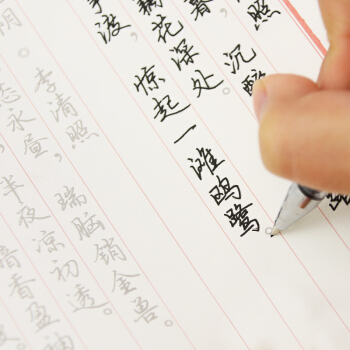 照
暮。沉醉
藕花深处。
渡，惊起一滩鸥鹭。
李清照
阴。
愁永昼，瑞脑销金兽。
半夜凉初透。
暗香盈袖